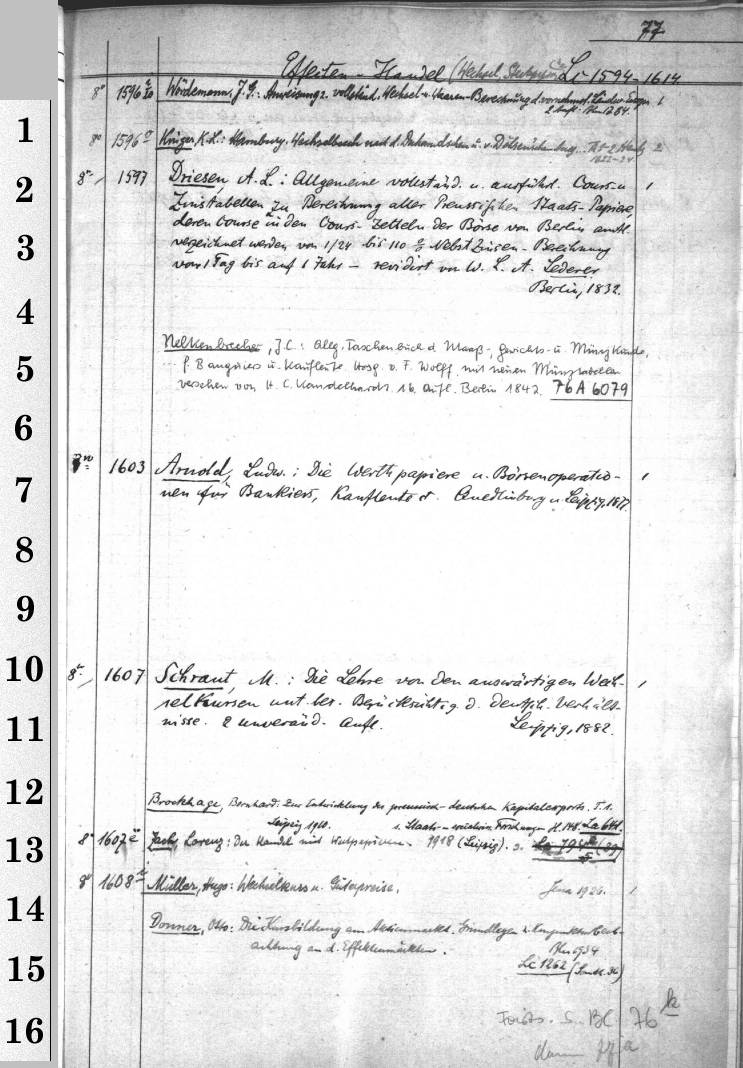 77
Effecten-Handel (Wechsel, Li 1594-1614
8° 1596 Wördemann, J. G.: Anweisung z. vollständ. Wechsel- u. Waaren-Berechnung d. vornehmst. 1
2. Aufl. Bln 1784.
8° 1596 Krüger, K. H.: Hamburg. Wechselbuch nach d. 2
1
8° 1597 Driesen, A. L.: Allgemeine vollständ. u. ausführl. Cours- u. 1
2
Zinstabellen zu Berechnung aller Preussischen Staats-Papiere,
deren Course in den Cours-Zetteln der Börse von Berlin amtl.
3
verzeichnet werden von 1/24 bis 110 % Nebst Zinsen-Berechnung
von 1 Tag bis auf 1 Jahr – revidirt von W. L. A. Lederer
Berlin, 1832.
4
Nelkenbrecher, J.C.: Allg. Taschenbuch d. Maaß-, Gewichts- u. Münzkunde,
5
f. Banquiers u. Kaufleute. Hrsg. v. F. Wolff mit neuen Münztabellen
versehen von H. C. Kandelhardt. 16. Aufl. Berlin 1842. 76 A 6079
6
1603 Arnold, Ludw.: Die Werthpapiere u. Börsenoperatio- 1
7
nen für Bankiers, Kaufleute etc. Quedlinburg u. Leipzig, 1877.
8
9
10
8° 1607 Schraut, M.: Die Lehre von den auswärtigen Wech- 1
selkursen unt. bes. Berücksichtig. d. deutsch. Verhält-
11
nisse. 2 unveränd. Aufl. Leipzig, 1882.
12
Brockhage, Bernhard: Zur Entwicklung des preussisch-deutschen Kapitalexports. T. 1.
Leipzig 1910. s. Staats- u. socialwiss. Forschungen H. 148.
13
8° 1607 Zach, Lorenz: Der Handel mit Wertpapieren. 1918 (Leipzig).
8° 1608 Müller, Hugo: Wechselkurs u. Güterpreise. Jena 1926. 1
14
Donner, Otto: Die Kursbildung am Aktienmarkt. Grundlagen z. Konjunkturbeob-
achtung an d. Effektenmärkten. Bln 1934
15
Li 1262 (Sonderh. 36)
16
Forts. s. Bl. 76 k
dann 77 a